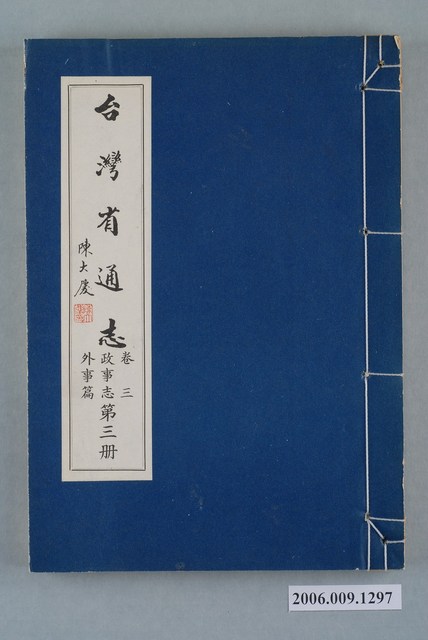 台灣省通志
卷三
政事志
外事篇
第三册
陳大慶
2006.009.1297